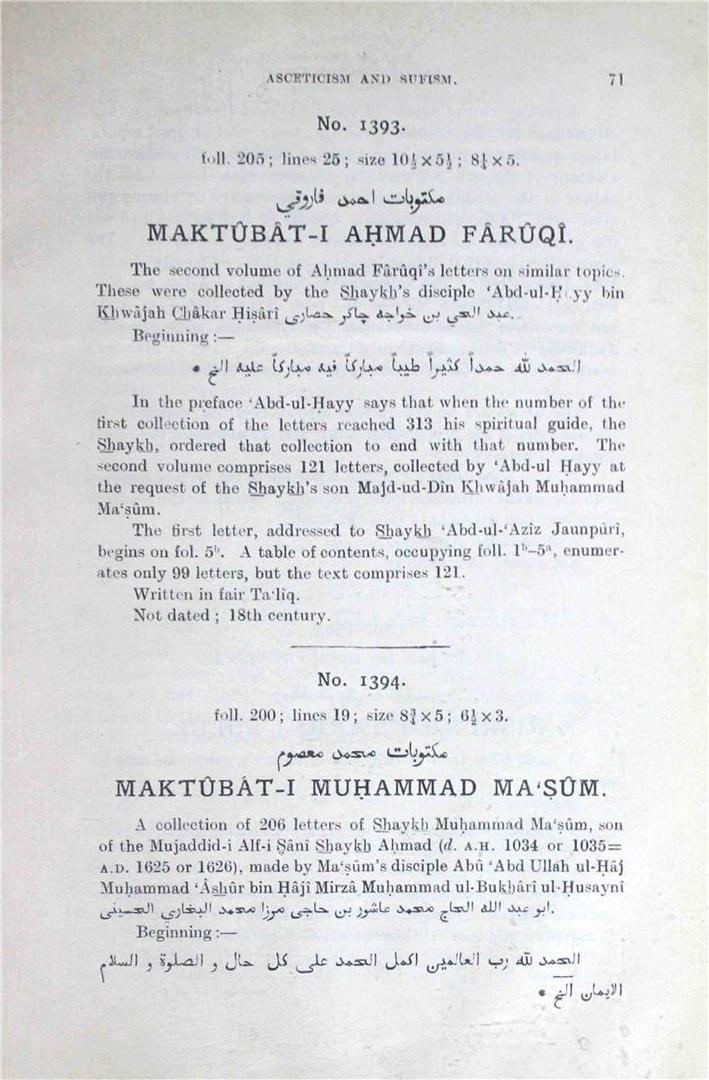 ASCETICISM AND SUFISM. 71
No. 1393.
foll. 205; lines 25; size 10½ × 5½; 8¼ × 5.
مكتوبات احمد فاروقي
MAKTÛBÂT-I AḤMAD FÂRÛQÎ.
The second volume of Aḥmad Fârûqî's letters on similar topics.
These were collected by the Shaykh's disciple ‘Abd-ul-Ḥayy bin
Khwâjah Châkar Ḥiṣârî عبد الحي بن خواجه چاكر حصارى.
Beginning :—
الحمد لله حمداً كثيراً طيباً مباركاً فيه مباركاً عليه الخ *
In the preface ‘Abd-ul-Ḥayy says that when the number of the
first collection of the letters reached 313 his spiritual guide, the
Shaykh, ordered that collection to end with that number. The
second volume comprises 121 letters, collected by ‘Abd-ul Ḥayy at
the request of the Shaykh's son Majd-ud-Dîn Khwâjah Muḥammad
Ma‘ṣûm.
The first letter, addressed to Shaykh ‘Abd-ul-‘Azîz Jaunpûrî,
begins on fol. 5ᵇ. A table of contents, occupying foll. 1ᵇ–5ᵃ, enumer-
ates only 99 letters, but the text comprises 121.
Written in fair Ta‘lîq.
Not dated ; 18th century.
No. 1394.
foll. 200; lines 19; size 8¾ × 5; 6½ × 3.
مكتوبات محمد معصوم
MAKTÛBÂT-I MUḤAMMAD MA‘ṢÛM.
A collection of 206 letters of Shaykh Muḥammad Ma‘ṣûm, son
of the Mujaddid-i Alf-i Ṣânî Shaykh Aḥmad (d. A.H. 1034 or 1035=
A.D. 1625 or 1626), made by Ma‘ṣûm's disciple Abû ‘Abd Ullâh ul-Ḥâj
Muḥammad ‘Âshûr bin Ḥâjî Mirzâ Muḥammad ul-Bukhârî ul-Ḥusaynî
ابو عبد الله الحاج محمد عاشور بن حاجي مرزا محمد البخاري الحسيني.
Beginning :—
الحمد لله رب العالمين اكمل الحمد على كل حال و الصلوة و السلام
الايمان الخ *